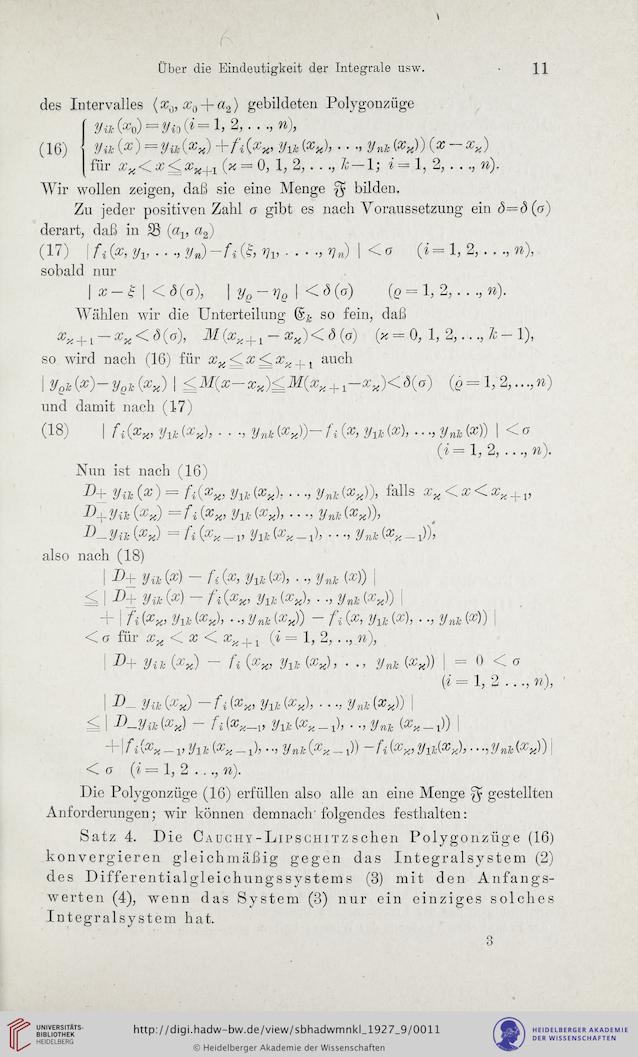 Über die Eindeutigkeit der Integrale usw. 11
des Intervalles ⟨x₀, x₀ + a₂⟩ gebildeten Polygonzüge
y_{ik}(x₀) = y_{i0} (i = 1, 2, . . ., n),
(16) y_{ik}(x) = y_{ik}(x_ϰ) + f_i(x_ϰ, y_{1k}(x_ϰ), . . ., y_{nk}(x_ϰ)) (x — x_ϰ)
für x_ϰ < x ≦ x_{ϰ+1} (ϰ = 0, 1, 2, . . ., k—1; i = 1, 2, . . ., n).
Wir wollen zeigen, daß sie eine Menge 𝔉 bilden.
Zu jeder positiven Zahl σ gibt es nach Voraussetzung ein δ = δ(σ)
derart, daß in 𝔅 (a₁, a₂)
(17) | f_i(x, y₁, . . ., y_n) — f_i(ξ, η₁, . . . ., η_n) | < σ (i = 1, 2, . . ., n),
sobald nur
| x — ξ | < δ(σ), | y_ϱ — η_ϱ | < δ(σ) (ϱ = 1, 2, . . ., n).
Wählen wir die Unterteilung 𝔈_k so fein, daß
x_{ϰ+1} — x_ϰ < δ(σ), M(x_{ϰ+1} — x_ϰ) < δ(σ) (ϰ = 0, 1, 2, . . ., k — 1),
so wird nach (16) für x_ϰ ≦ x ≦ x_{ϰ+1} auch
| y_{ϱk}(x) — y_{ϱk}(x_ϰ) | ≦ M(x—x_ϰ) ≦ M(x_{ϰ+1}—x_ϰ) < δ(σ) (ϱ = 1, 2, . . ., n)
und damit nach (17)
(18) | f_i(x_ϰ, y_{1k}(x_ϰ), . . ., y_{nk}(x_ϰ)) — f_i(x, y_{1k}(x), . . ., y_{nk}(x)) | < σ
(i = 1, 2, . . ., n).
Nun ist nach (16)
D± y_{ik}(x) = f_i(x_ϰ, y_{1k}(x_ϰ), . . ., y_{nk}(x_ϰ)), falls x_ϰ < x < x_{ϰ+1},
D₊ y_{ik}(x_ϰ) = f_i(x_ϰ, y_{1k}(x_ϰ), . . ., y_{nk}(x_ϰ)),
D₋ y_{ik}(x_ϰ) = f_i(x_{ϰ—1}, y_{1k}(x_{ϰ—1}), . . ., y_{nk}(x_{ϰ—1})),
also nach (18)
| D± y_{ik}(x) — f_i(x, y_{1k}(x), . ., y_{nk}(x)) |
≦ | D± y_{ik}(x) — f_i(x_ϰ, y_{1k}(x_ϰ), . ., y_{nk}(x_ϰ)) |
+ | f_i(x_ϰ, y_{1k}(x_ϰ), . ., y_{nk}(x_ϰ)) — f_i(x, y_{1k}(x), . ., y_{nk}(x)) |
< σ für x_ϰ < x < x_{ϰ+1} (i = 1, 2, . ., n),
| D₊ y_{ik}(x_ϰ) — f_i(x_ϰ, y_{1k}(x_ϰ), . ., y_{nk}(x_ϰ)) | = 0 < σ
(i = 1, 2 . . ., n),
| D₋ y_{ik}(x_ϰ) — f_i(x_ϰ, y_{1k}(x_ϰ), . . ., y_{nk}(x_ϰ)) |
≦ | D₋ y_{ik}(x_ϰ) — f_i(x_{ϰ—1}, y_{1k}(x_{ϰ—1}), . ., y_{nk}(x_{ϰ—1})) |
+ | f_i(x_{ϰ—1}, y_{1k}(x_{ϰ—1}), . ., y_{nk}(x_{ϰ—1})) — f_i(x_ϰ, y_{1k}(x_ϰ), . . ., y_{nk}(x_ϰ)) |
< σ (i = 1, 2 . . ., n).
Die Polygonzüge (16) erfüllen also alle an eine Menge 𝔉 gestellten
Anforderungen; wir können demnach folgendes festhalten:
Satz 4. Die CAUCHY-LIPSCHITZschen Polygonzüge (16)
konvergieren gleichmäßig gegen das Integralsystem (2)
des Differentialgleichungssystems (3) mit den Anfangs-
werten (4), wenn das System (3) nur ein einziges solches
Integralsystem hat.
3
UNIVERSITÄTS-
BIBLIOTHEK
HEIDELBERG
http://digi.hadw-bw.de/view/sbhadwmnkl_1927_9/0011
© Heidelberger Akademie der Wissenschaften
HEIDELBERGER AKADEMIE
DER WISSENSCHAFTEN